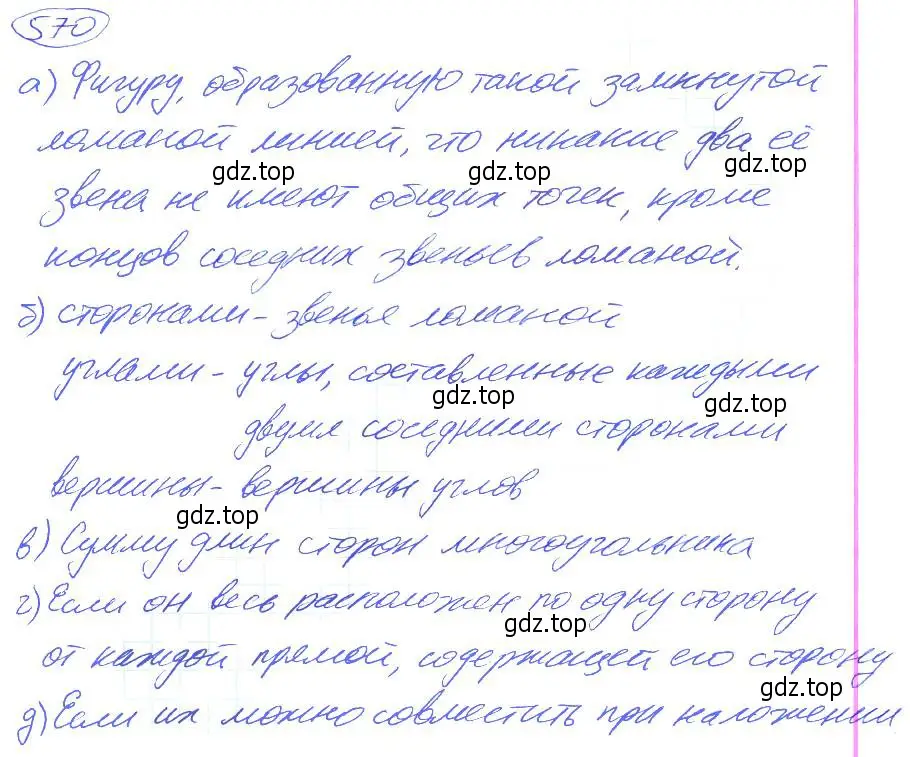 570
а) Фигуру, образованную такой замкнутой
ломаной линией, что никакие два её
gdz.top gdz.top gdz.top
звена не имеют общих точек, кроме
концов соседних звеньев ломаной.
б) сторонами - звенья ломаной
углами - углы, составленные каждыми
gdz.top gdz.top
двумя соседними сторонами
вершины - вершины углов
gdz.top
в) Сумму длин сторон многоугольника
г) Если он весь расположен по одну сторону
gdz.top
от каждой прямой, содержащей его сторону
gdz.top
д) Если их можно совместить при наложении